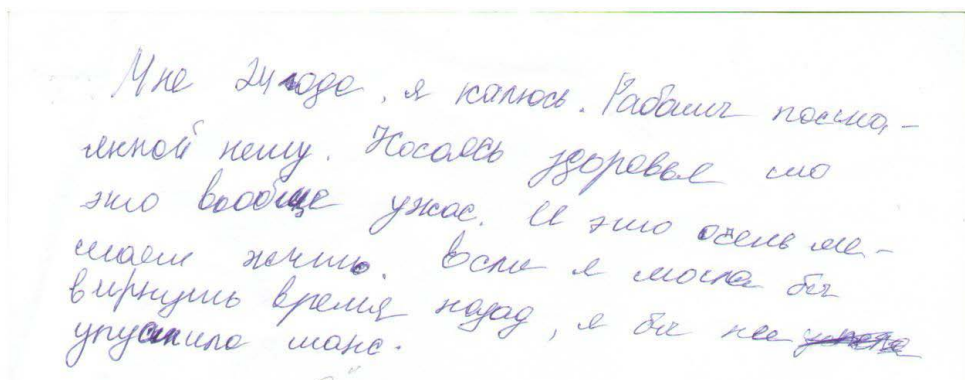 Мне 24 года, я колюсь. Работы посто-
янной нету. Косаясь здоровья то
это вообще ужас. И это очень ме-
шает жить. Если я могла бы
вирнуть время назад, я бы не
упустила шанс.